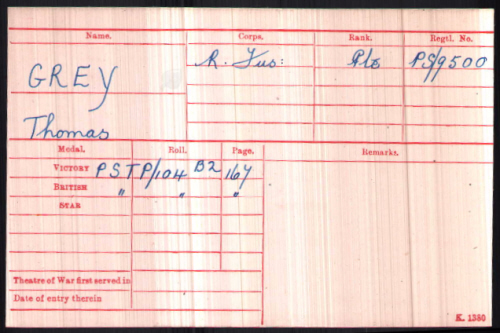 Name. Corps. Rank. Regtl. No.
GREY R. Fus: Pte PS/9500
Thomas
Medal. Roll. Page. Remarks.
VICTORY PSTP/104 B2 167
BRITISH " " "
STAR
Theatre of War first served in
Date of entry therein
K. 1380